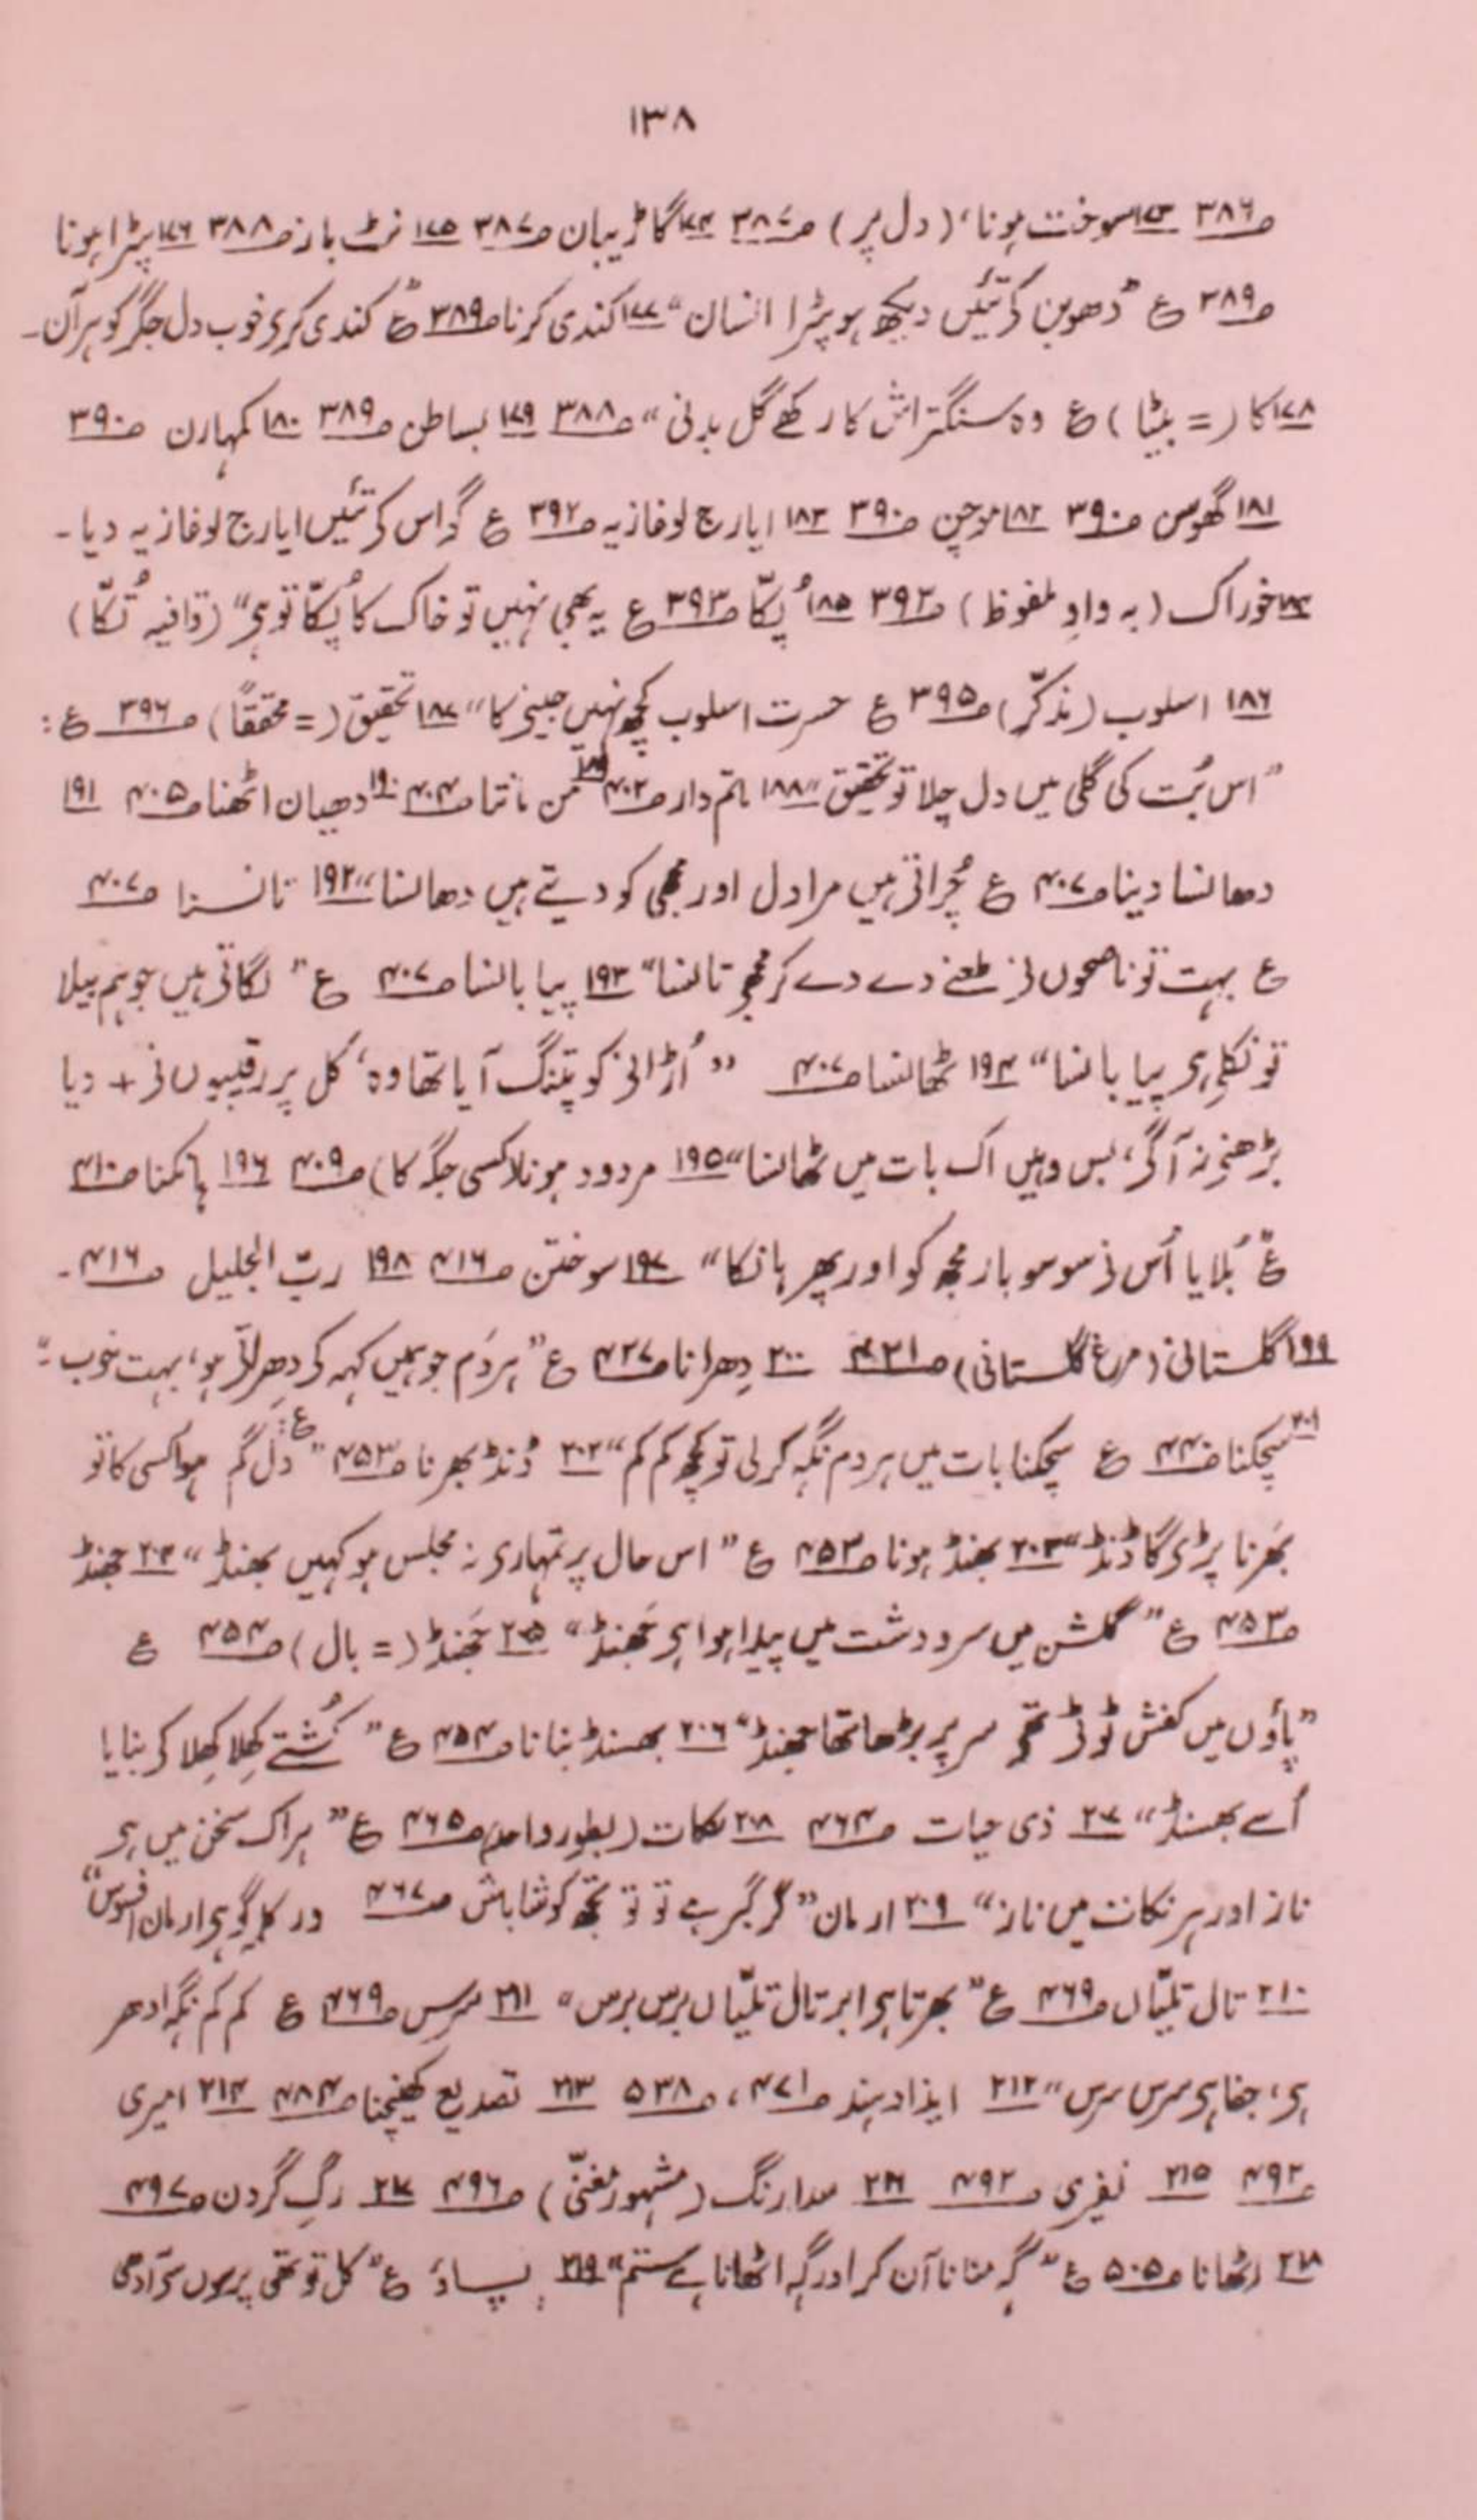 ۱۳۸
ص۳۸۶ ۱۷۳ سوخت ہونا، (دل پر) ص۳۸۷ ۱۷۴ گاڑیبان ص۳۸۷ ۱۷۵ نٹ باز ص۳۸۸ ۱۷۶ پٹرا ہونا
ص۳۸۹ ع "دھوبن کے تئیں دیکھ ہو پٹرا انسان" ۱۷۷ کندی کرنا ص۳۸۹ ع کندی کرے خوب دل جگر کو ہر آن۔
۱۷۸ کا (= بیٹا) ع وہ سنگتراش کا رکھے گل بدنی" ص۳۸۸ ۱۷۹ بساطن ص۳۸۹ ۱۸۰ کمہارن ص۳۹۰
۱۸۱ گھوسن ص۳۹۰ ۱۸۲ موچن ص۳۹۰ ۱۸۳ ایارج لوغازیہ ص۳۹۲ ع گر اس کے تئیں ایارج لوغازیہ دیا۔
۱۸۴ خوراک (بہ واوِ ملفوظ) ص۳۹۲ ۱۸۵ پُکّا ص۳۹۳ ع یہ بھی نہیں تو خاک کا پُکّا تو ہی" (قافیہ تُکّا)
۱۸۶ اسلوب (مذکّر) ص۳۹۵ ع حسرت اسلوب کچھ نہیں جینے کا" ۱۸۷ تحقیق (= محققاً) ص۳۹۶ ع:
"اس بُت کی گلی میں دل چلا تو تحقیق" ۱۸۸ ماتم دار ص۴۰۲ ۱۸۹ من ماننا ص۴۰۴ ۱۹۰ دھیان اٹھنا ص۴۰۵ ۱۹۱
دھانسا دینا ص۴۰۷ ع چُراتے ہیں مرا دل اور مجھی کو دیتے ہیں دھانسا" ۱۹۲ تانسنا ص۴۰۷
ع بہت تو ناصحوں نے طعنے دے دے کر مجھے تانسا" ۱۹۳ پیا بانسا ص۴۰۷ ع "لگاتے ہیں جو ہم بیلا
تو نکلے ہی پیا بانسا" ۱۹۴ ٹھانسنا ص۴۰۷ "اُڑانے کو پتنگ آیا تھا وہ، کل پر رقیبوں نے + دیا
بڑھنے نہ آگے، بس وہیں اک بات میں ٹھانسا" ۱۹۵ مردود ہونا (کسی جگہ کا) ص۴۰۹ ۱۹۶ ہانکنا ص۴۱۰
ع "بُلایا اُس نے سو سو بار مجھ کو اور پھر ہانکا" ۱۹۷ سوختن ص۴۱۶ ۱۹۸ ربّ الجلیل ص۴۱۶۔
۱۹۹ گلستانی (مرغ گلستانی) ص۴۲۱ ۲۰۰ دِھرانا ص۴۲۷ ع "ہر دَم جو ہمیں کہہ کے دِھراتے ہو، بہت خوب"
۲۰۱ سچکنا ص۴۴۰ ع سچکنا بات میں ہر دم نگہ کرلی تو کچھ کم کم" ۲۰۲ ڈنڈ بھرنا ص۴۵۳ ع: "دل گم ہوا کسی کا تو
بھرنا پڑے گا ڈنڈ" ۲۰۳ بھنڈ ہونا ص۴۵۳ ع "اس حال پر تمہاری نہ مجلس ہو کہیں بھنڈ" ۲۰۴ جھنڈ
ص۴۵۳ ع "گلشن میں سرو دشت میں پیدا ہوا ہی جھنڈ" ۲۰۵ جَھنڈ (= بال) ص۴۵۴ ع
"پاؤں میں کفش ٹوٹی تھی سر پر بڑھا تھا جھنڈ" ۲۰۶ بھسنڈ بنانا ص۴۵۴ ع "کُشتے کِھلا کِھلا کے بنایا
اُسے بھسنڈ" ۲۰۷ ذی حیات ص۴۶۴ ۲۰۸ نکات (بطور واحد) ص۴۶۵ ع "ہر اک سخن میں ہی
ناز اور ہر نکات میں ناز" ۲۰۹ ارمان "گر گبر ہے تو تو تجھ کو شاباش ص۴۶۷ ور کلمہ گو ہی ارمان افسوس"
۲۱۰ تال تلیّاں ص۴۶۹ ع "بھرتا ہی ابر تال تلیّاں برس برس" ۲۱۱ سرس ص۴۶۹ ع کم کم نگہ ادھر
ہی، جفا ہی سرس سرس" ۲۱۲ ایذا دہند ص۴۷۱، ص۵۳۸ ۲۱۳ تصدیع کھینچنا ص۴۸۴ ۲۱۴ امیری
ص۴۹۲ ۲۱۵ نفیری ص۴۹۲ ۲۱۶ سدا رنگ (مشہور مُغنّی) ص۴۹۶ ۲۱۷ رگِ گردن ص۴۹۷
۲۱۸ اٹھانا ص۵۰۵ ع "گہ منانا آن کر اور گہ اٹھانا ہے ستم" ۲۱۹ پساؤ ع "کل تو تھی پرسوں سے آدھی